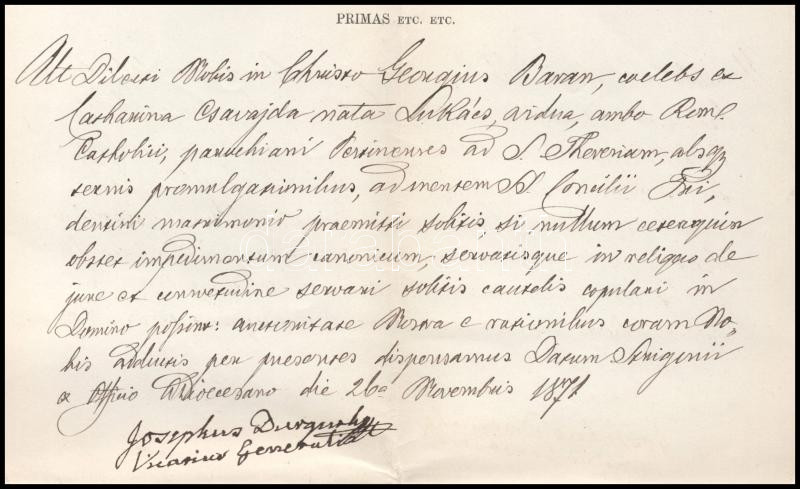 PRIMAS ETC. ETC.
Ut Dilecti Nobis in Christo Georgius Baran, coelebs et
Catharina Csavajda nata Lukács, vidua, ambo Rom.
Catholici, parochiani Pertinentes ad S. Theresiam, absq
ternis promulgationibus, ad mentem S. Concilii Tri,
dentini matrimonio praemitti solitis, si nullum ceteroquin
obstet impedimentum canonicum, servatisque in religio de
jure et consvetudine servari solitis cautelis copulari in
Domino possint: auctoritate Nostra e rationibus coram No-
bis adductis per praesentes dispensamus Datum Strigonii
ex Officio A Dioecesano die 26a Novembris 1871
Josephus
Vicarius Generalis